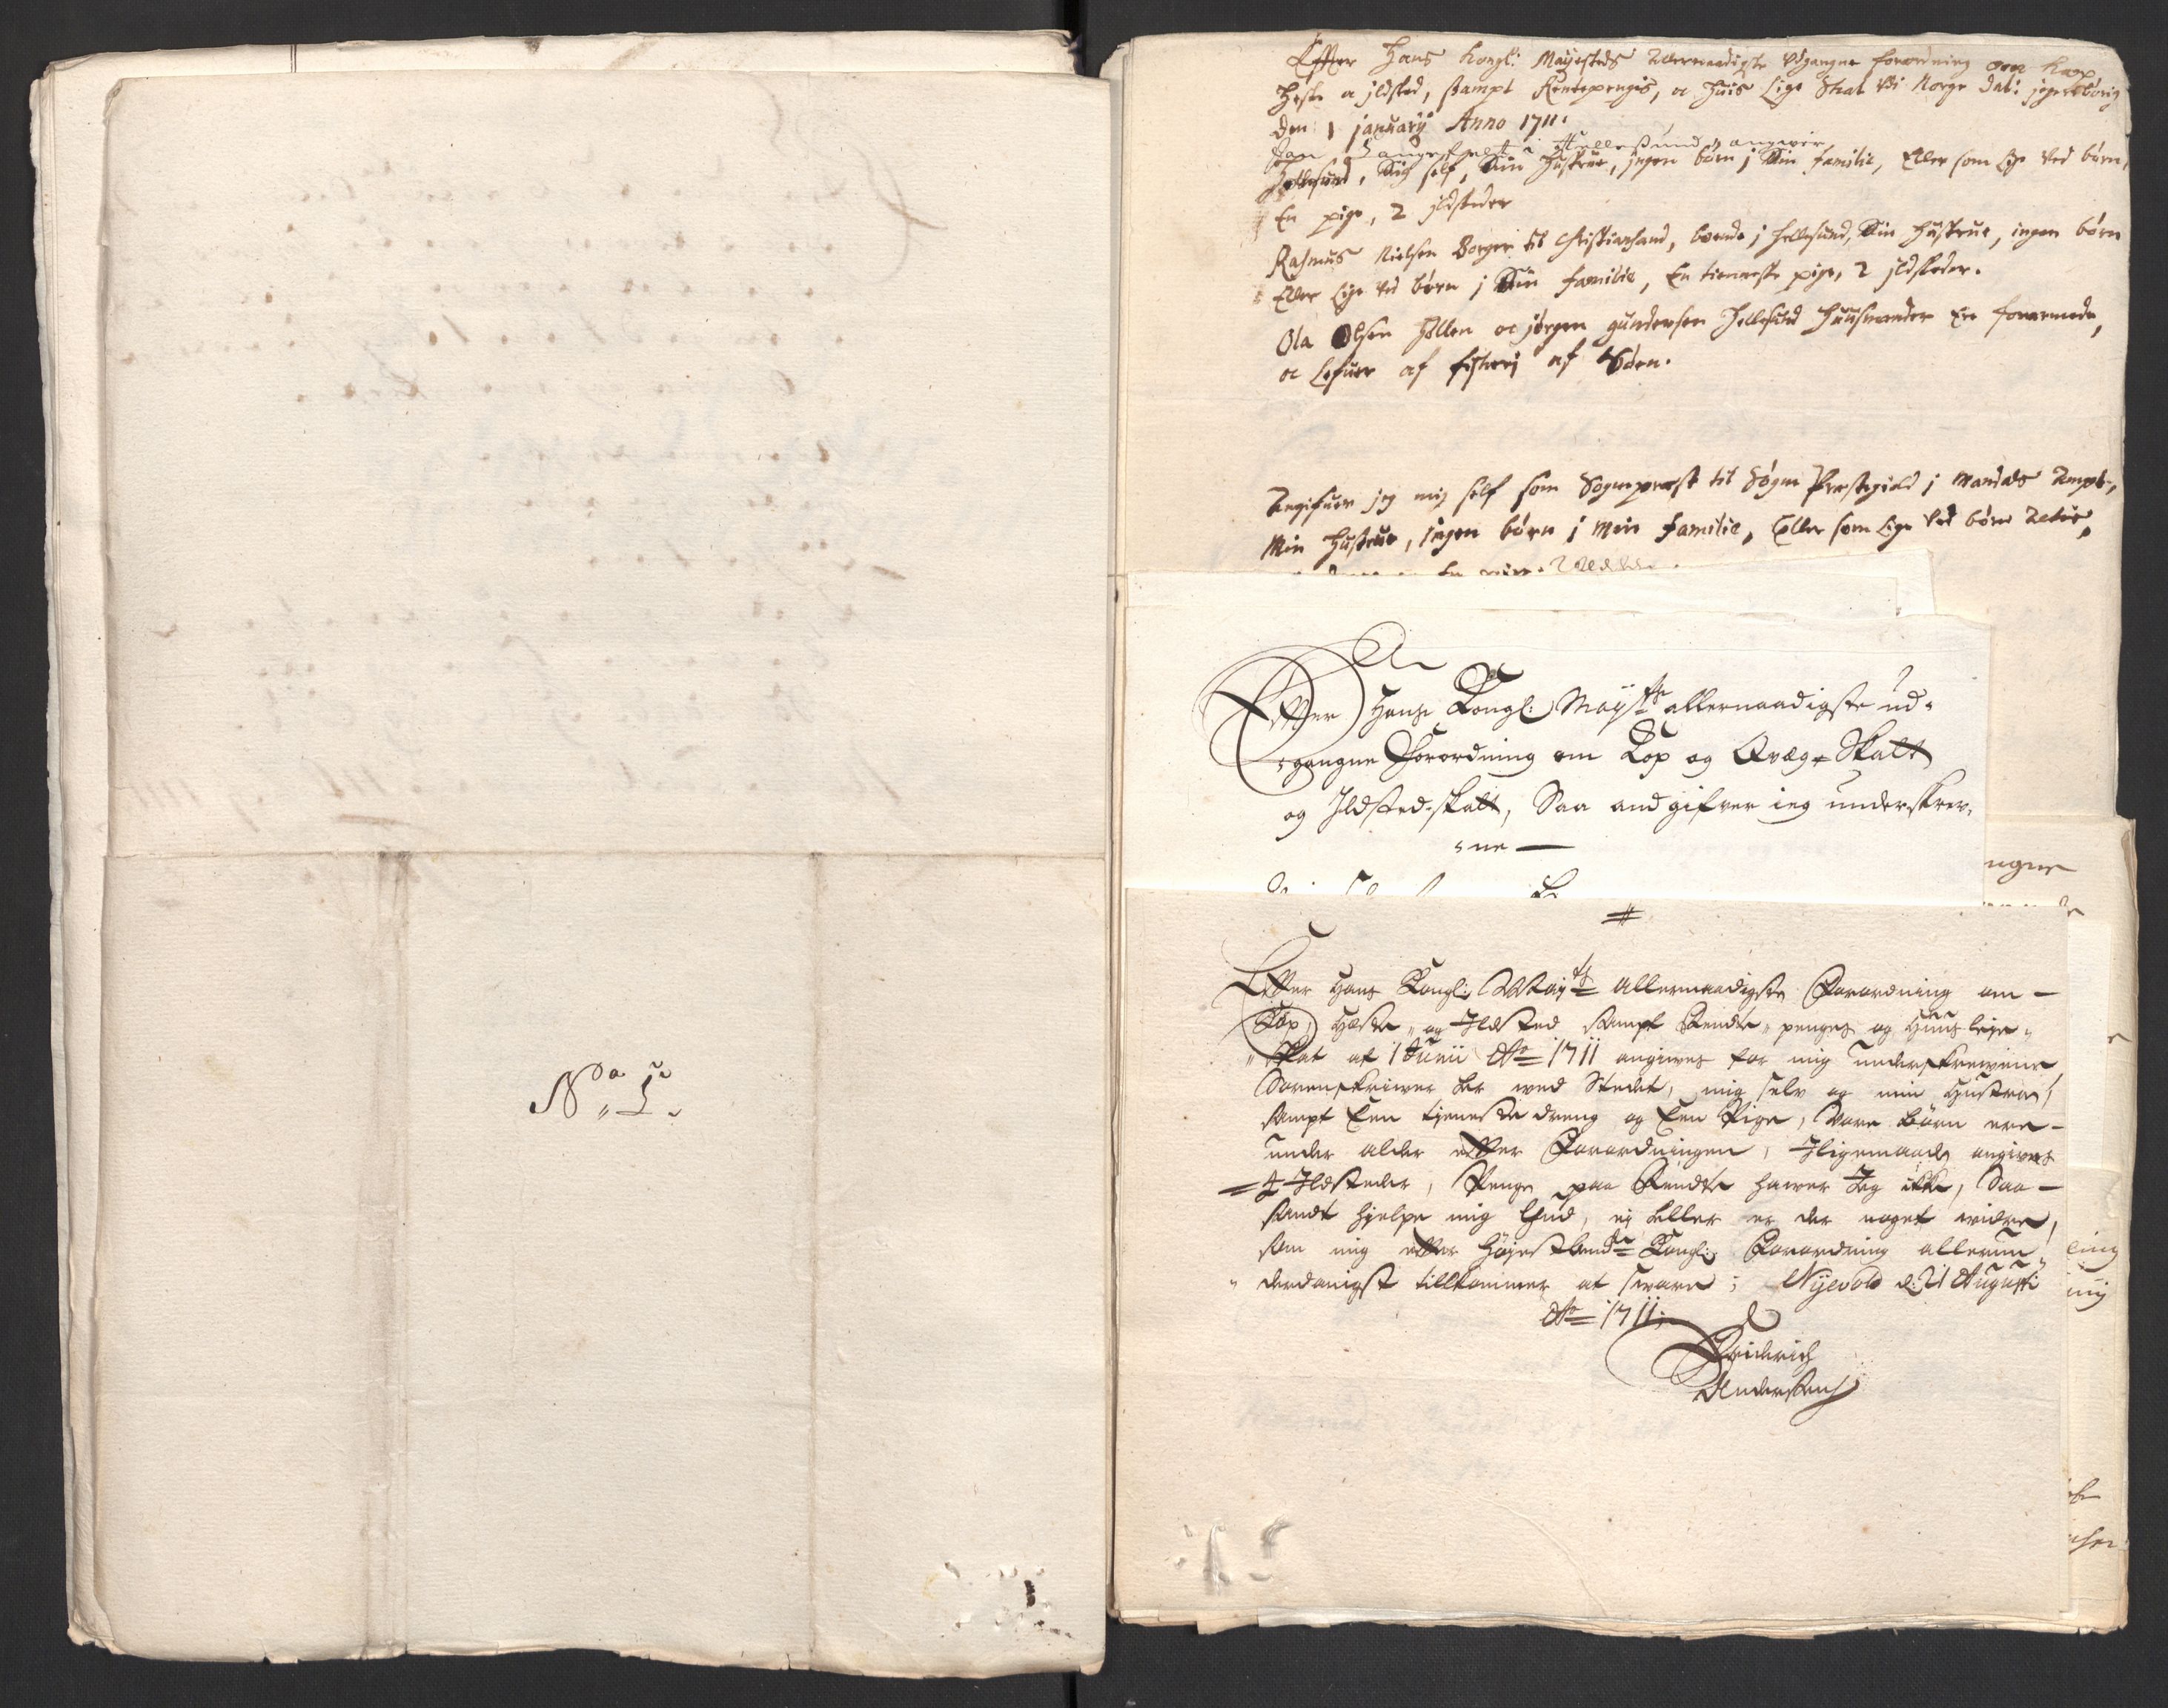 No 5.
Effter Hans Kongl: Mayesteds Allernaadigste Udgangne forordning om Kop
Heste oc jldsted, sampt Rentepengis, oc Huus Lige Skat udi Norge Dat: jegersborig
Den 1 januarij Anno 1711.
Hellesund, angiver,
Hellesund, Sig self, Sin Hustrue, jngen børn j Sin familie, Eller som Lige Ved børn,
En pige, 2 jldsteder
Rasmus Nielsen Borger til Christiansand, boende j Hellesund, Sin Hustrue, ingen børn
Eller Lige Ved børn j Sin familie, En tieneste pige, 2 jldsteder.
Ola Olsen Hellen oc jørgen gundersen Hellesund Huusmænder Ere forarmede,
oc Lefuer af fisherj af Søen.
Angifuer jeg mig self som Sogneprest til Søgne Præstegield j Mandals Ampt,
Min Hustrue, jngen børn j Min familie, Eller som Lige Ved børn
Effter Hans Kongl: Mayts allernaadigste ud-
gangne Forordning om Kop og Qvæg-Skatt
og Ildsted-skatt, Saa andgifver ieg underskrev-
ne
Effter Hans Kongl: Mayts Allernaadigste Forordning om
Kop, Heste, og Ildsted sampt Rendte, penges og Huusleje-
Skat af 1 Junii Ao 1711 angives for mig underskrevene
Sorenskriver her ved Stedet, mig selv og min Hustroe,
sampt Een tjeneste dreng og Een Pige, Vore Børn ere
under alder effter Forordningen, Iligemaade angives
4 Ildsteder, Penge paa Rendte haver Jeg icke, Saa
sandt hjelpe mig Gud, ej heller er der noget widre,
som mig effter højestbemte Kongl: Forordning allerun-
derdanigst tillkommer at svare; Nijevold d: 21 Augusti
Ao 1711;
Friderich
Andersen